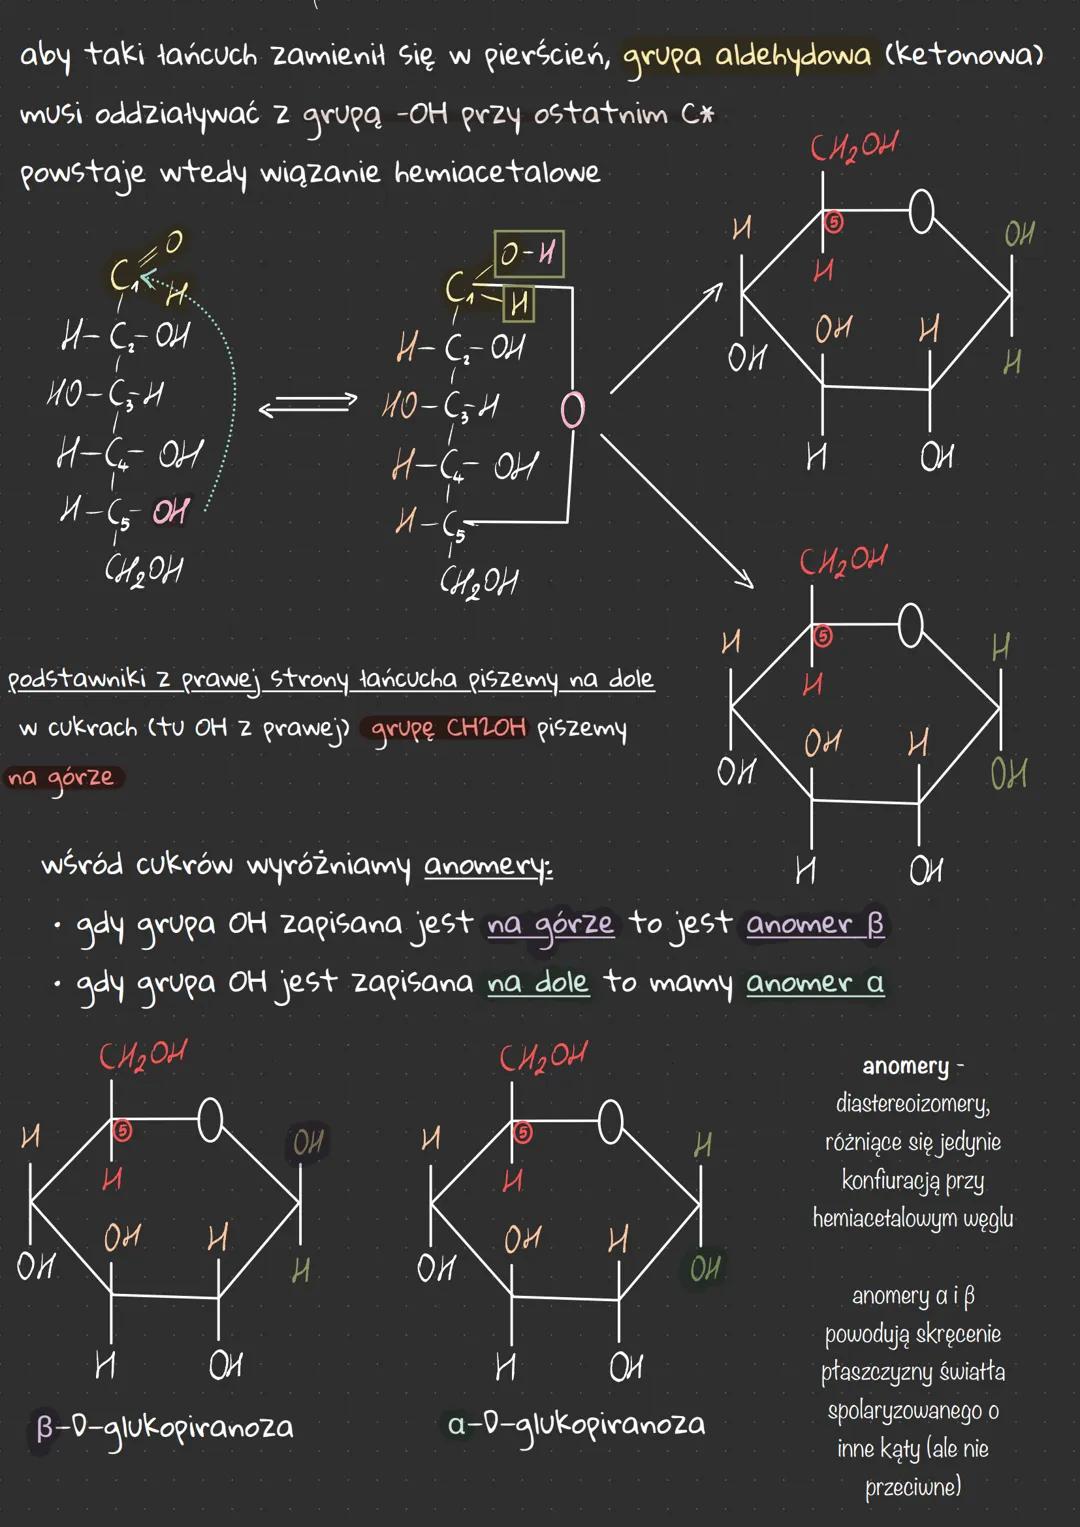 aby taki łańcuch zamienił się w pierścień, grupa aldehydowa (ketonowa)
musi oddziaływać z grupą -OH przy ostatnim C*
powstaje wtedy wiązanie hemiacetalowe
C1 O
H
H-C2-OH
HO-C3-H
H-C4-OH
H-C5-OH
CH2OH
C1 O-H
H
H-C2-OH
HO-C3-H
H-C4-OH
H-C5
CH2OH
O
CH2OH
H 5 O OH
H
OH H H
OH
H OH
CH2OH
H 5 O H
H
OH H
OH OH
H OH
podstawniki z prawej strony łańcucha piszemy na dole
w cukrach (tu OH z prawej) grupę CH2OH piszemy
na górze
wśród cukrów wyróżniamy anomery:
• gdy grupa OH zapisana jest na górze to jest anomer β
• gdy grupa OH jest zapisana na dole to mamy anomer α
CH2OH
H 5 O OH
H
OH H
OH H
H OH
β-D-glukopiranoza
CH2OH
H 5 O H
H
OH H
OH OH
H OH
α-D-glukopiranoza
anomery -
diastereoizomery,
różniące się jedynie
konfiuracją przy
hemiacetalowym węglu
anomery α i β
powodują skręcenie
płaszczyzny światła
spolaryzowanego o
inne kąty (ale nie
przeciwne)